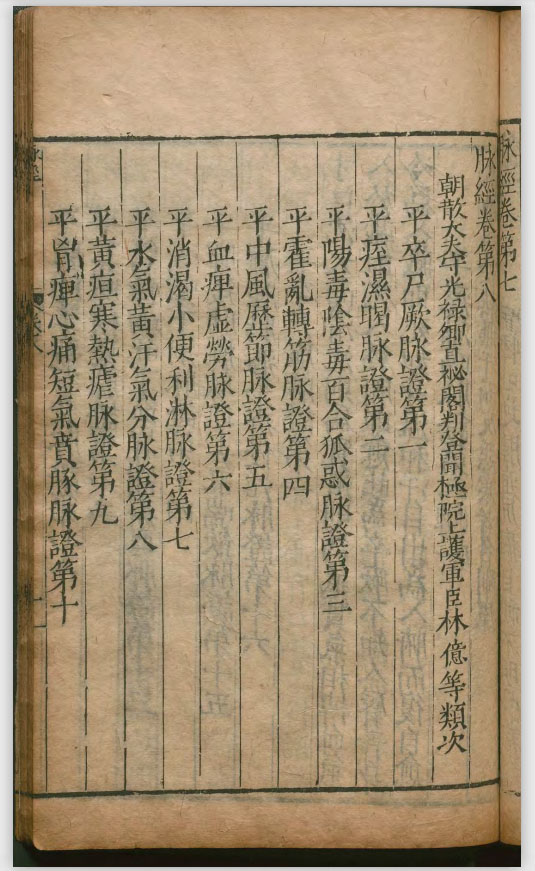 脉經卷第七
脉經卷第八
朝散大夫守光祿卿直祕閣判登聞檢院上護軍臣林億等類次
平卒尸厥脉證第一
平痓濕暍脉證第二
平陽毒陰毒百合狐惑脉證第三
平霍亂轉筋脉證第四
平中風歷節脉證第五
平血痺虛勞脉證第六
平消渴小便利淋脉證第七
平水氣黃汗氣分脉證第八
平黃疸寒熱瘧脉證第九
平胷痺心痛短氣賁豚脉證第十